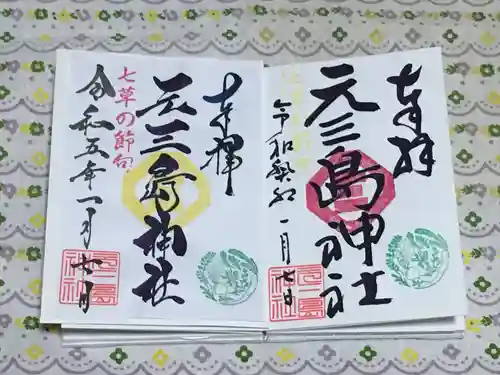 奉拝
元三島神社
令和癸卯 一月七日
奉拝
元三島神社
七草の節句
令和五年一月七日